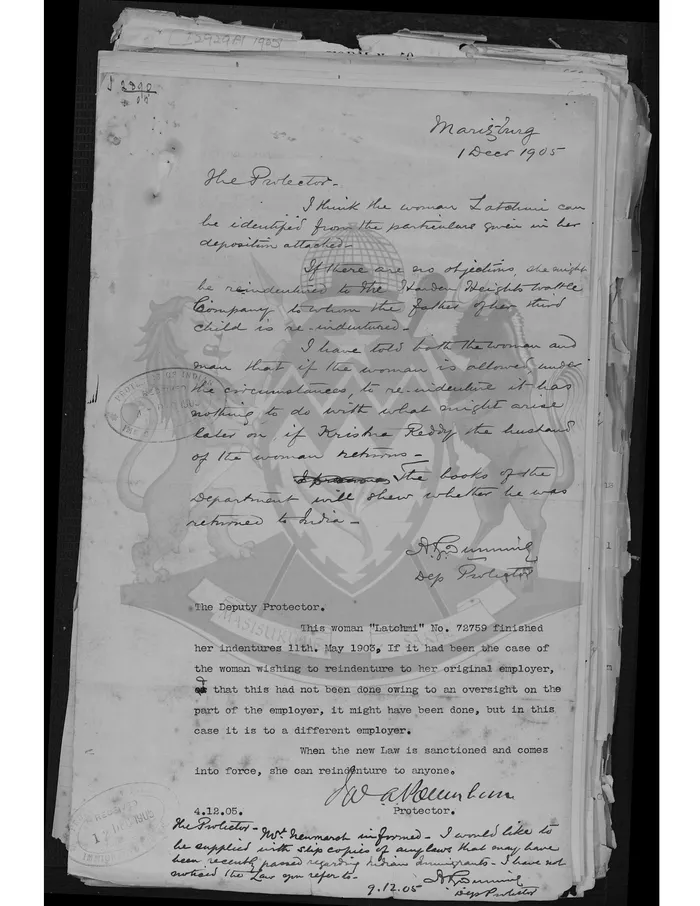 I 2320
05
Maritzburg
1 Decr 1905
The Protector -
I think the woman Latchmi can
be identified from the particulars given in her
deposition attached -
If there are no objections, she might
be reindentured to the Harden Heights Wattle
Company to whom the father of her third
child is re-indentured -
I have told both the woman and
man that if the woman is allowed, under
the circumstances, to re-indenture it has
nothing to do with what might arise
later on if Krishna Reddy the husband
of the woman returns -
The books of the
Department will shew whether he was
returned to India -
Dep Protector
The Deputy Protector.
This woman "Latchmi" No. 72759 finished
her indentures 11th. May 1903, If it had been the case of
the woman wishing to reindenture to her original employer,
& that this had not been done owing to an oversight on the
part of the employer, it might have been done, but in this
case it is to a different employer.
When the new Law is sanctioned and comes
into force, she can reindenture to anyone.
4.12.05. Protector.
The Protector - Mr. Newmarsh informed - I would like to
be supplied with slip copies of any laws that may have
been recently passed regarding Indian Immigrants - I have not
noticed the Law you refer to -
9.12.05
Dep Protector